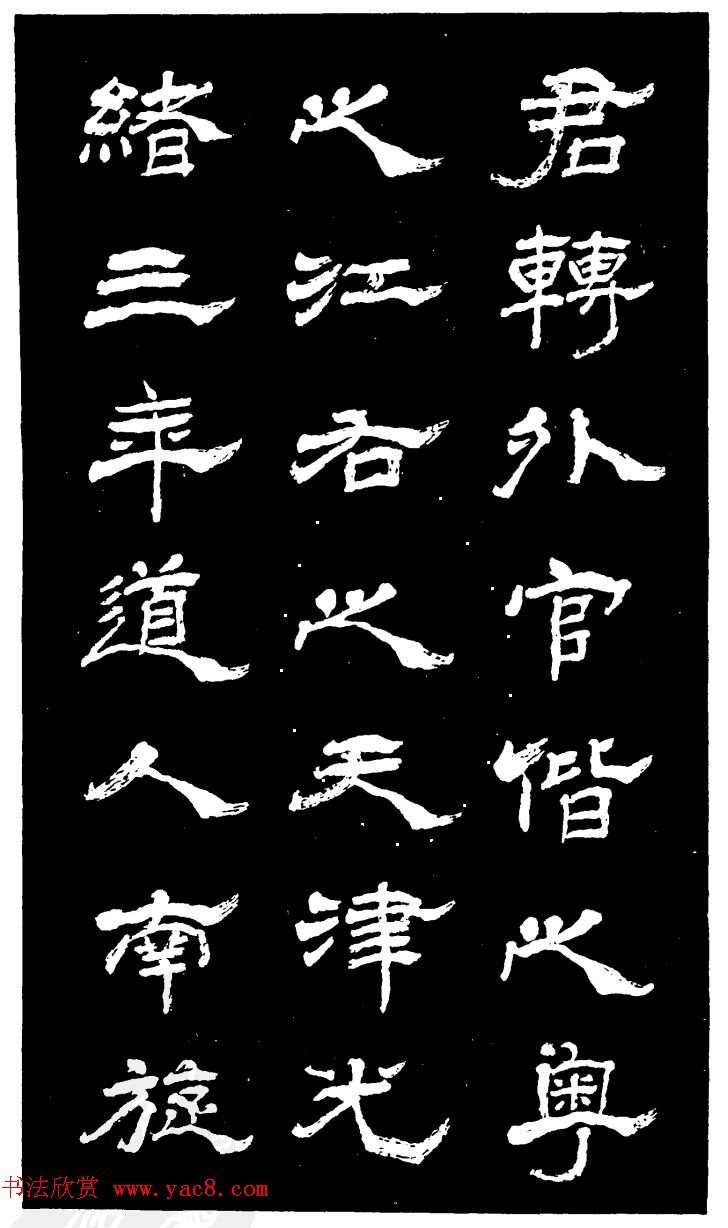 君轉外官偕之粵
之江右之天津光
緒三年道人南旋
书法欣赏 www.yac8.com